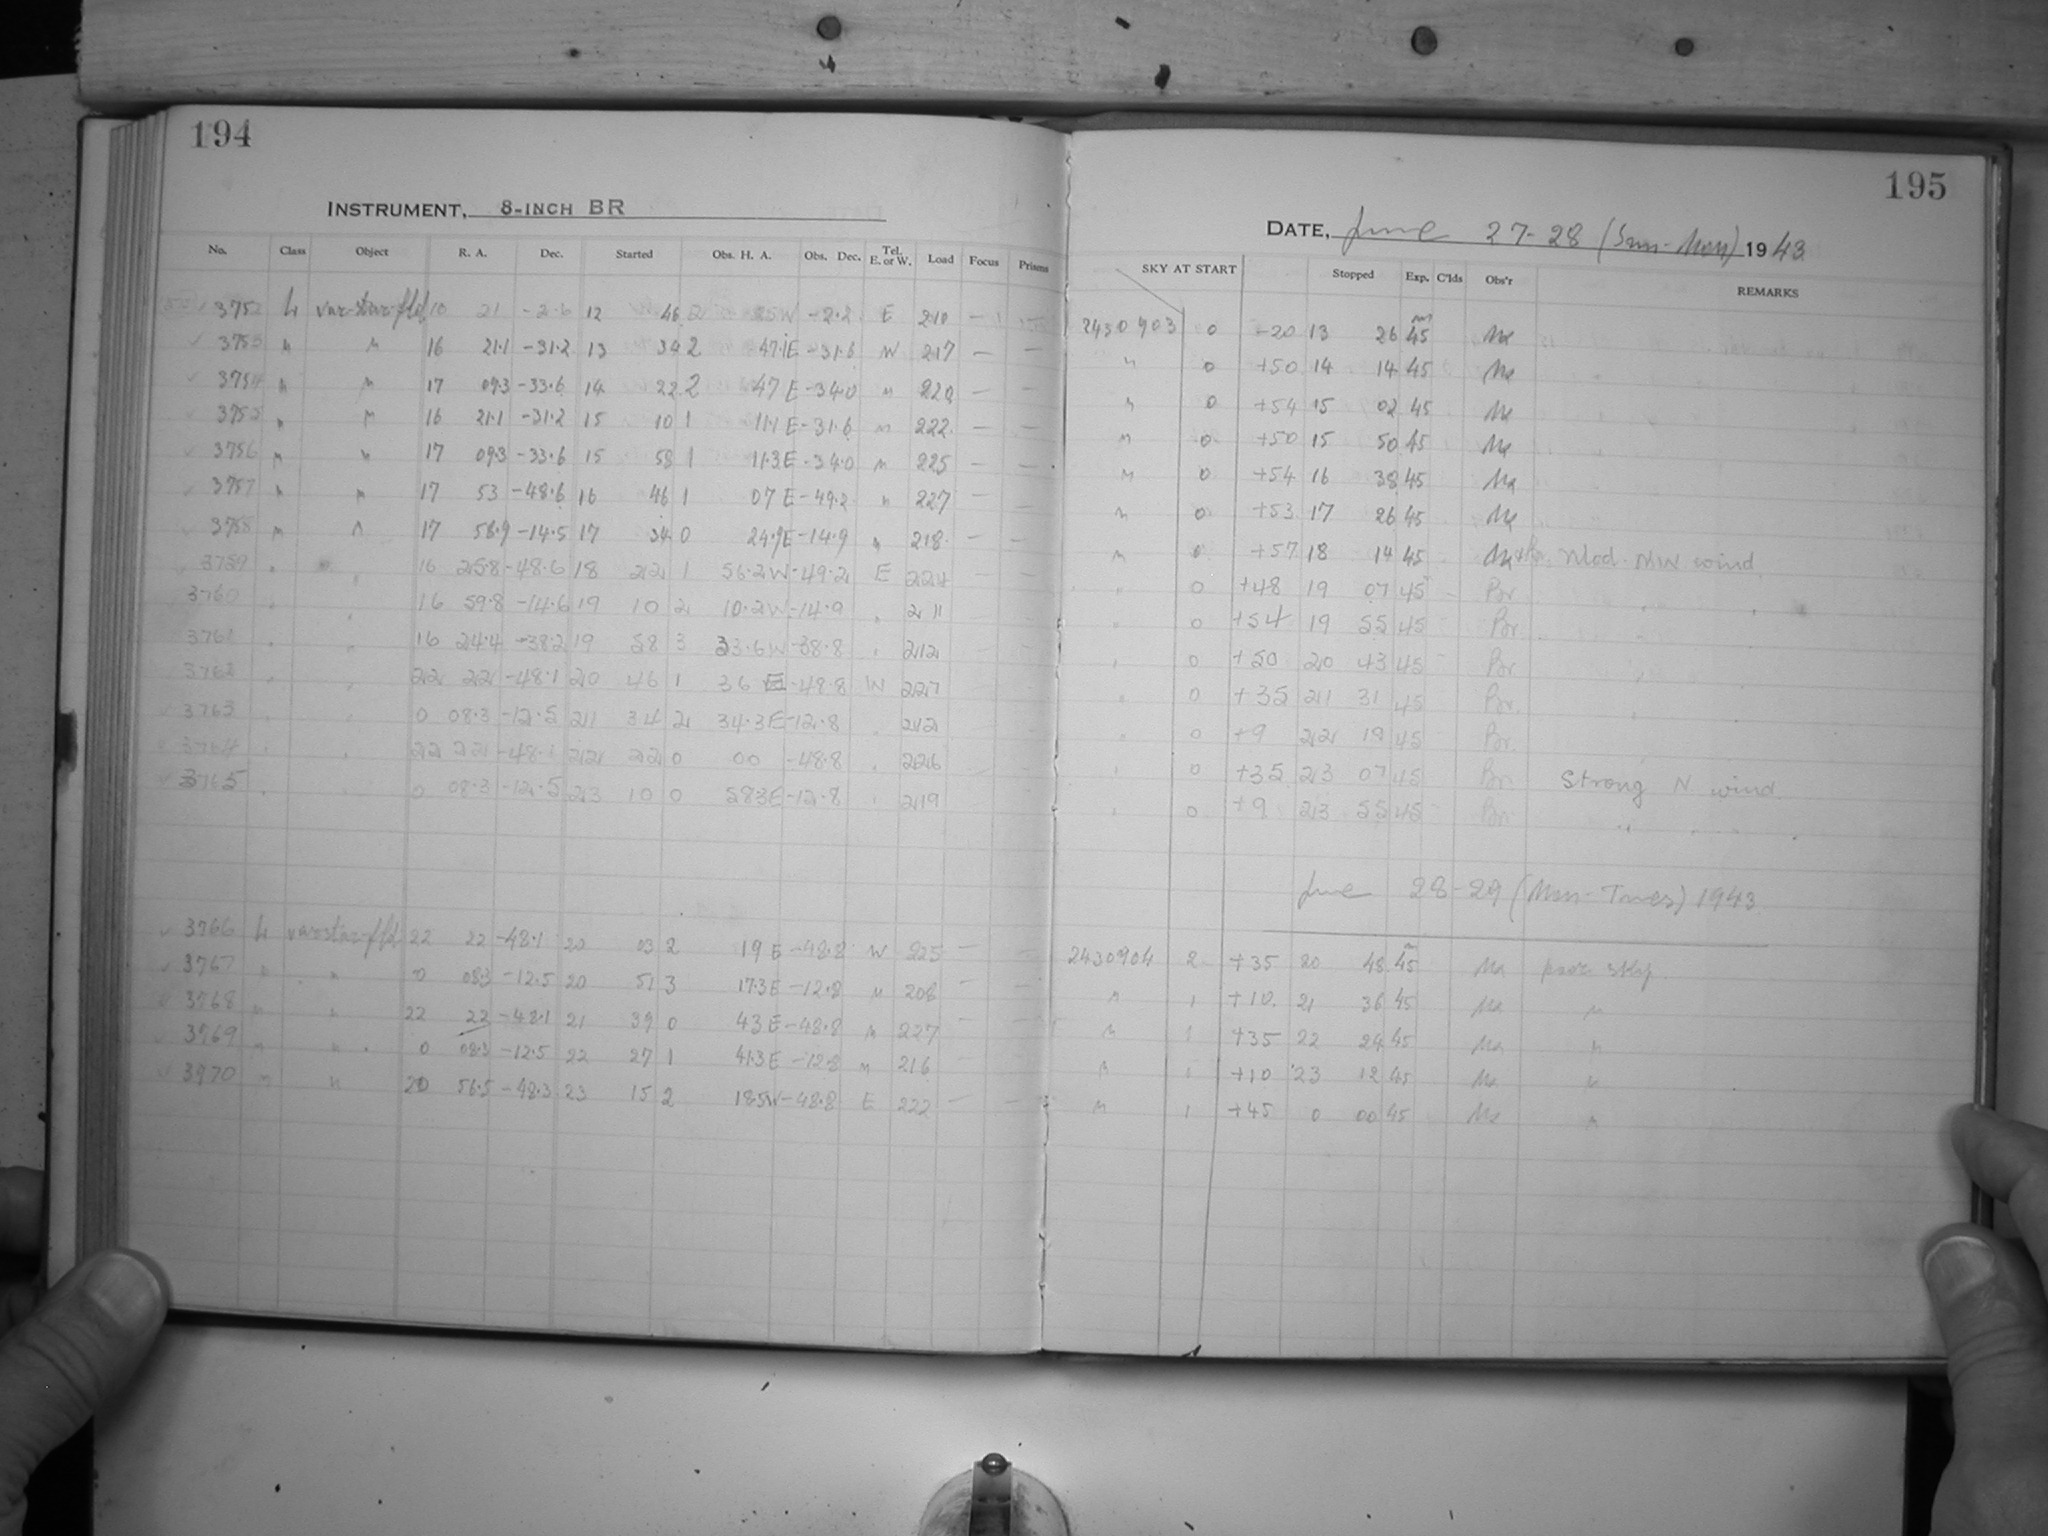 194
INSTRUMENT, 8-INCH BR
No. Class Object R. A. Dec. Started Obs. H. A. Obs. Dec. Tel. E. or W. Load Focus Prisms
3752 L var-star-fld 10 21 -2.6 12 46 2 25W -2.2 E 210 —
3753 " " 16 21.1 -31.2 13 34 2 47.1E -31.6 W 217 — —
3754 " " 17 09.3 -33.6 14 22 2 47 E -34.0 " 220 — —
3755 " " 16 21.1 -31.2 15 10 1 11.1 E -31.6 " 222 — —
3756 " " 17 09.3 -33.6 15 58 1 11.3E -34.0 " 225 — —
3757 " " 17 53 -48.6 16 46 1 07 E -49.2 " 227 — —
3758 " " 17 58.9 -14.5 17 34 0 24.9E -14.9 " 218 — —
3759 " " 16 25.8 -48.6 18 22 1 56.2W -49.2 E 224 — —
3760 " " 16 59.8 -14.6 19 10 2 10.2W -14.9 " 211 — —
3761 " " 16 24.4 -38.2 19 58 3 33.6W -38.8 " 212 — —
3762 " " 22 22 -48.1 20 46 1 36 E -48.8 W 227 — —
3763 " " 0 08.3 -12.5 21 34 2 34.3E -12.8 " 212
3764 " " 22 22 -48.1 22 22 0 00 -48.8 " 226
3765 " " 0 08.3 -12.5 23 10 0 58.3E -12.8 " 219
3766 L var-star-fld 22 22 -48.1 20 03 2 19 E -48.8 W 225 — —
3767 " " 0 08.3 -12.5 20 51 3 17.3E -12.8 " 208 — —
3768 " " 22 22 -48.1 21 39 0 43 E -48.8 " 227 — —
3769 " " 0 08.3 -12.5 22 27 1 41.3E -12.8 " 216 — —
3970 " " 20 56.5 -48.3 23 15 2 18.5W -48.8 E 222 — —
195
DATE, June 27-28 (Sun-Mon) 1943
SKY AT START Stopped Exp. C'lds Obs'r REMARKS
2430903 0 -20 13 26 45m Ma
" 0 +50 14 14 45 Ma
" 0 +54 15 02 45 Ma
" 0 +50 15 50 45 Ma
" 0 +54 16 38 45 Ma
" 0 +53 17 26 45 Ma
" 0 +57 18 14 45 Ma+Br. Mod. NW wind
" 0 +48 19 07 45 Br " "
" 0 +54 19 55 45 Br "
" 0 +50 20 43 45 Br "
" 0 +35 21 31 45 Br "
" 0 +9 22 19 45 Br "
" 0 +35 23 07 45 Br Strong N wind
" 0 +9 23 55 45 Br " " "
June 28-29 (Mon-Tues) 1943
2430904 2 +35 20 48 45m Ma poor sky
" 1 +10 21 36 45 Ma "
" 1 +35 22 24 45 Ma "
" 1 +10 23 12 45 Ma "
" 1 +45 0 00 45 Ma "